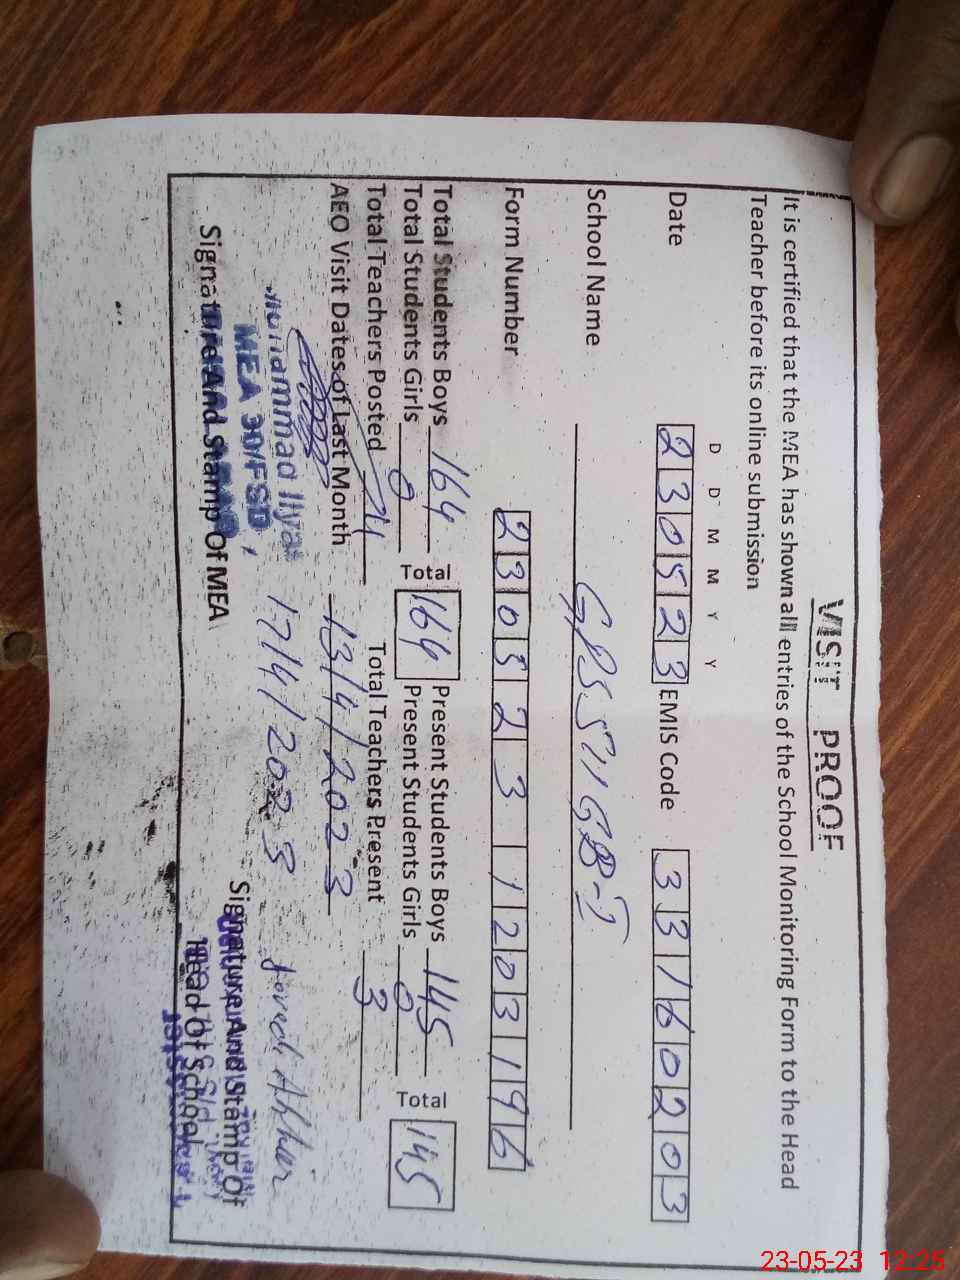 VISIT PROOF
It is certified that the MEA has shown all entries of the School Monitoring Form to the Head
Teacher before its online submission
D D M M Y Y
Date 230523 EMIS Code 33160203
School Name GPS 571 GB-I
Form Number 230523 1203196
Total Students Boys 164 Total 164 Present Students Boys 145 Total 145
Total Students Girls 0 Present Students Girls 0
Total Teachers Posted Total Teachers Present 3
AEO Visit Dates of Last Month 13/4/2023
17/4/2023
Muhammad Ilyas
MEA 30/FSD
Signature And Stamp Of MEA
Signature And Stamp Of
Head Of School
23-05-23 12:25